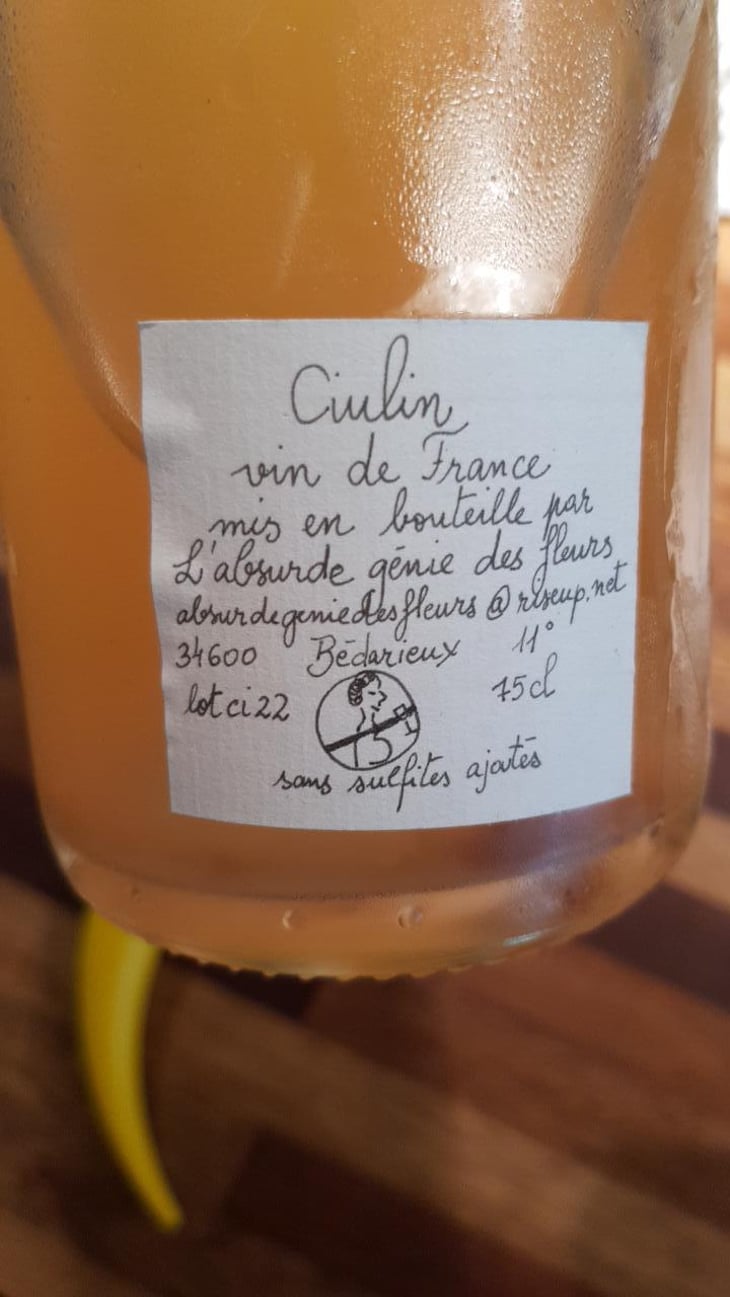 Ciulin
vin de France
mis en bouteille par
L'absurde génie des fleurs
absurdegeniedesfleurs@riseup.net
34600 Bédarieux 11°
lot ci22 75cl
sans sulfites ajoutés